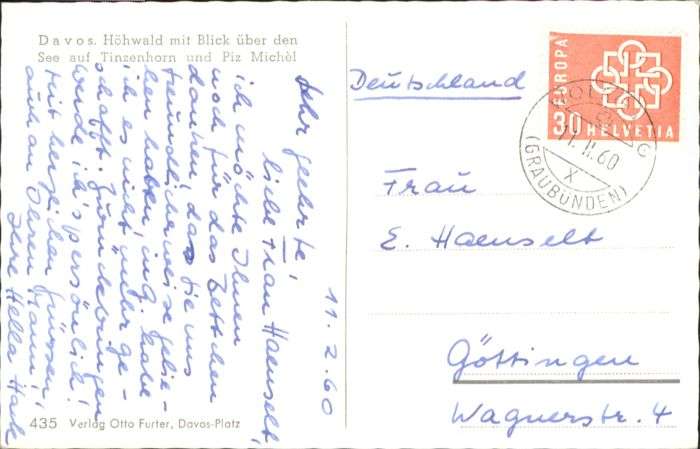 Davos. Höhwald mit Blick über den
See auf Tinzenhorn und Piz Michèl
11. 2. 60
Sehr geehrte,
liebe Frau Haenselt,
ich möchte Ihnen
noch für das Bettchen
danken, das Sie uns
freundlicherweise gelie-
hen haben, infg. habe
ich es nicht mehr ge-
schafft. Zurückbringen
werde ich's persönlich!
Mit herzlichen Grüssen,
auch an Ihren Mann,
Ihre Hella
435 Verlag Otto Furter, Davos-Platz
Deutschland
EUROPA
30 HELVETIA
11. II. 60
X
(GRAUBÜNDEN)
Frau
E. Haenselt
Göttingen
Wagnerstr. 4